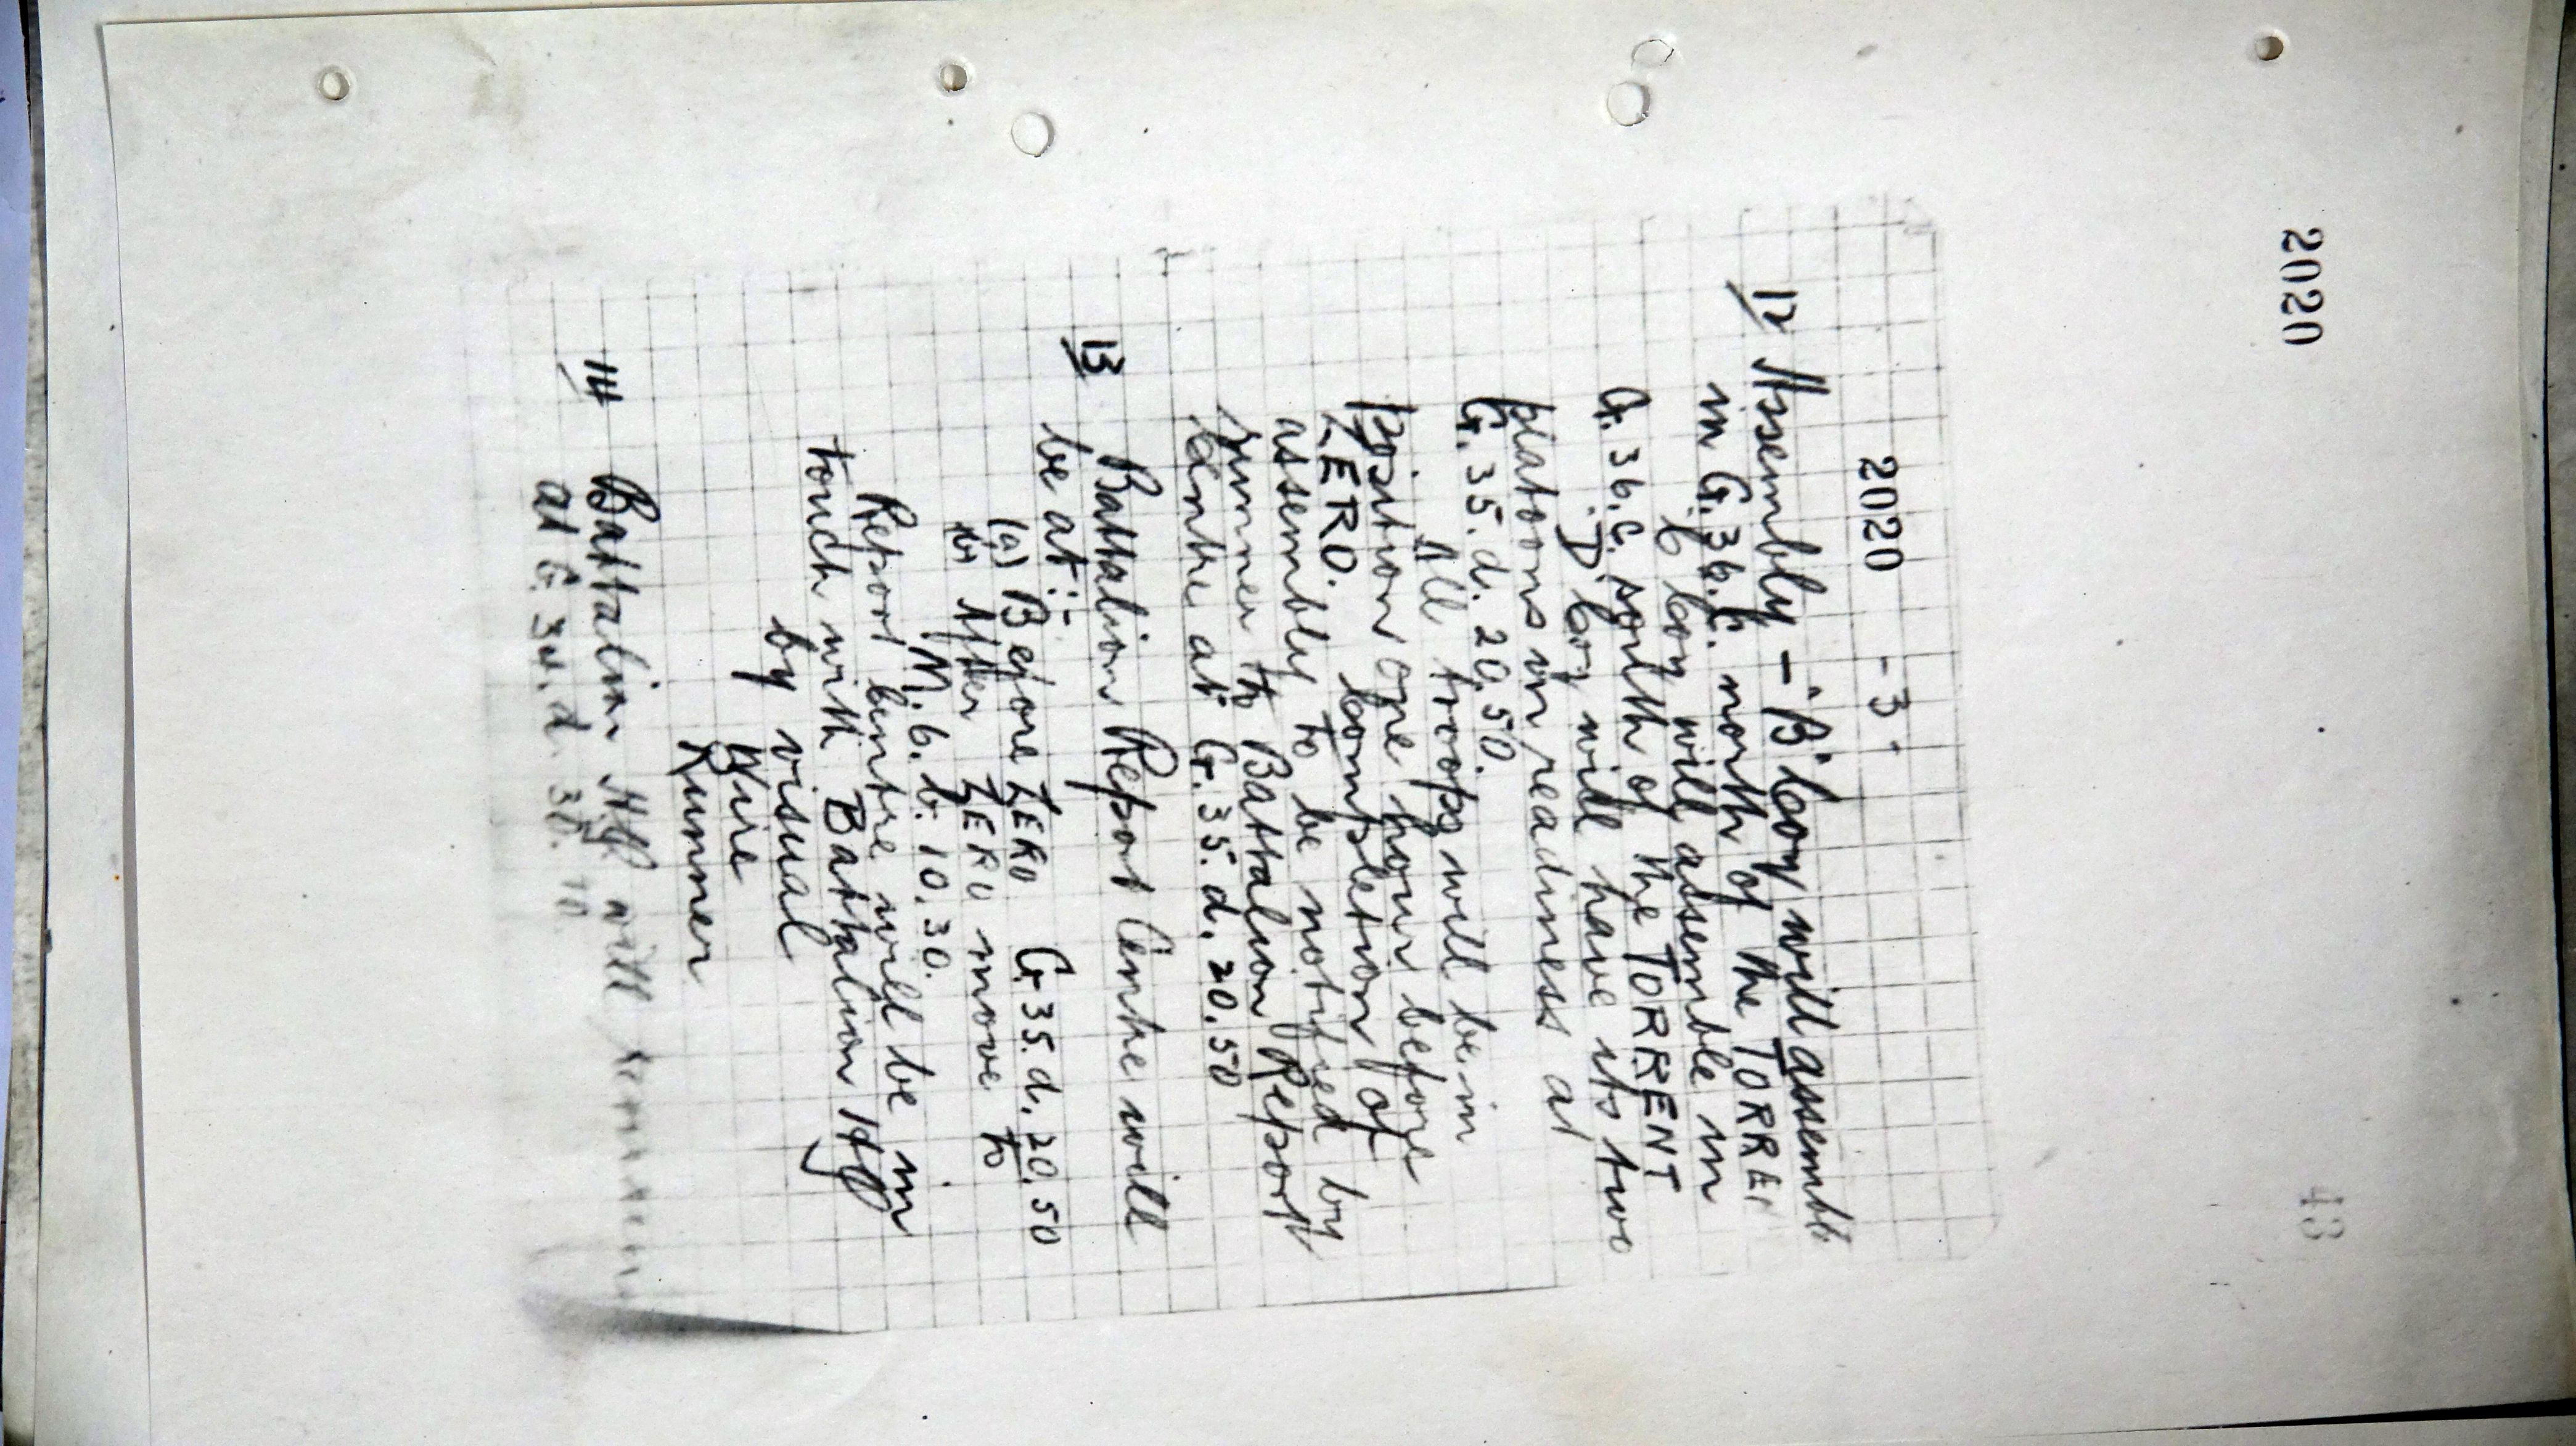 2020
2020 - 3 -
12 Assembly - "B" Coy will assemble
in G.36.C. north of the TORREN
C Coy will assemble in
G.36.C. south of the TORRENT
D Coy will have its two
platoons in readiness at
G.35.d.20.50.
All troops will be in
position one hour before
ZERO. Completion of
assembly to be notified by
runner to Battalion Report
Centre at G.35.d.20.50
13 Battalion Report Centre will
be at :-
(a) Before ZERO G.35.d.20.50
(b) After ZERO move to
M.6.b.10.30.
Report Centre will be in
touch with Battalion HQ
by visual
Wire
Runner
14 Battalion HQ will remain
at G.34.d.30.10.
43